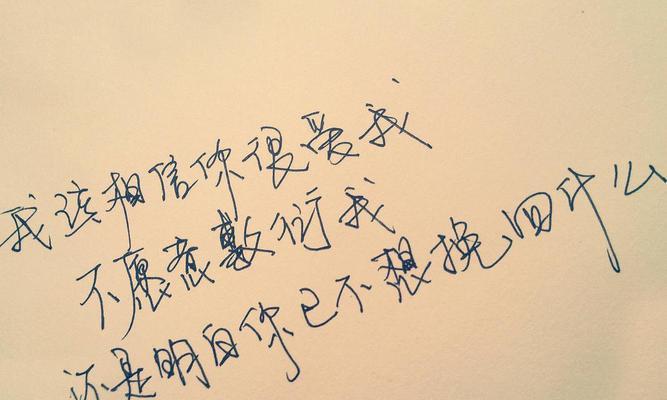 我该相信你很爱我
不愿意敷衍我
还是明白你已不想挽回什么